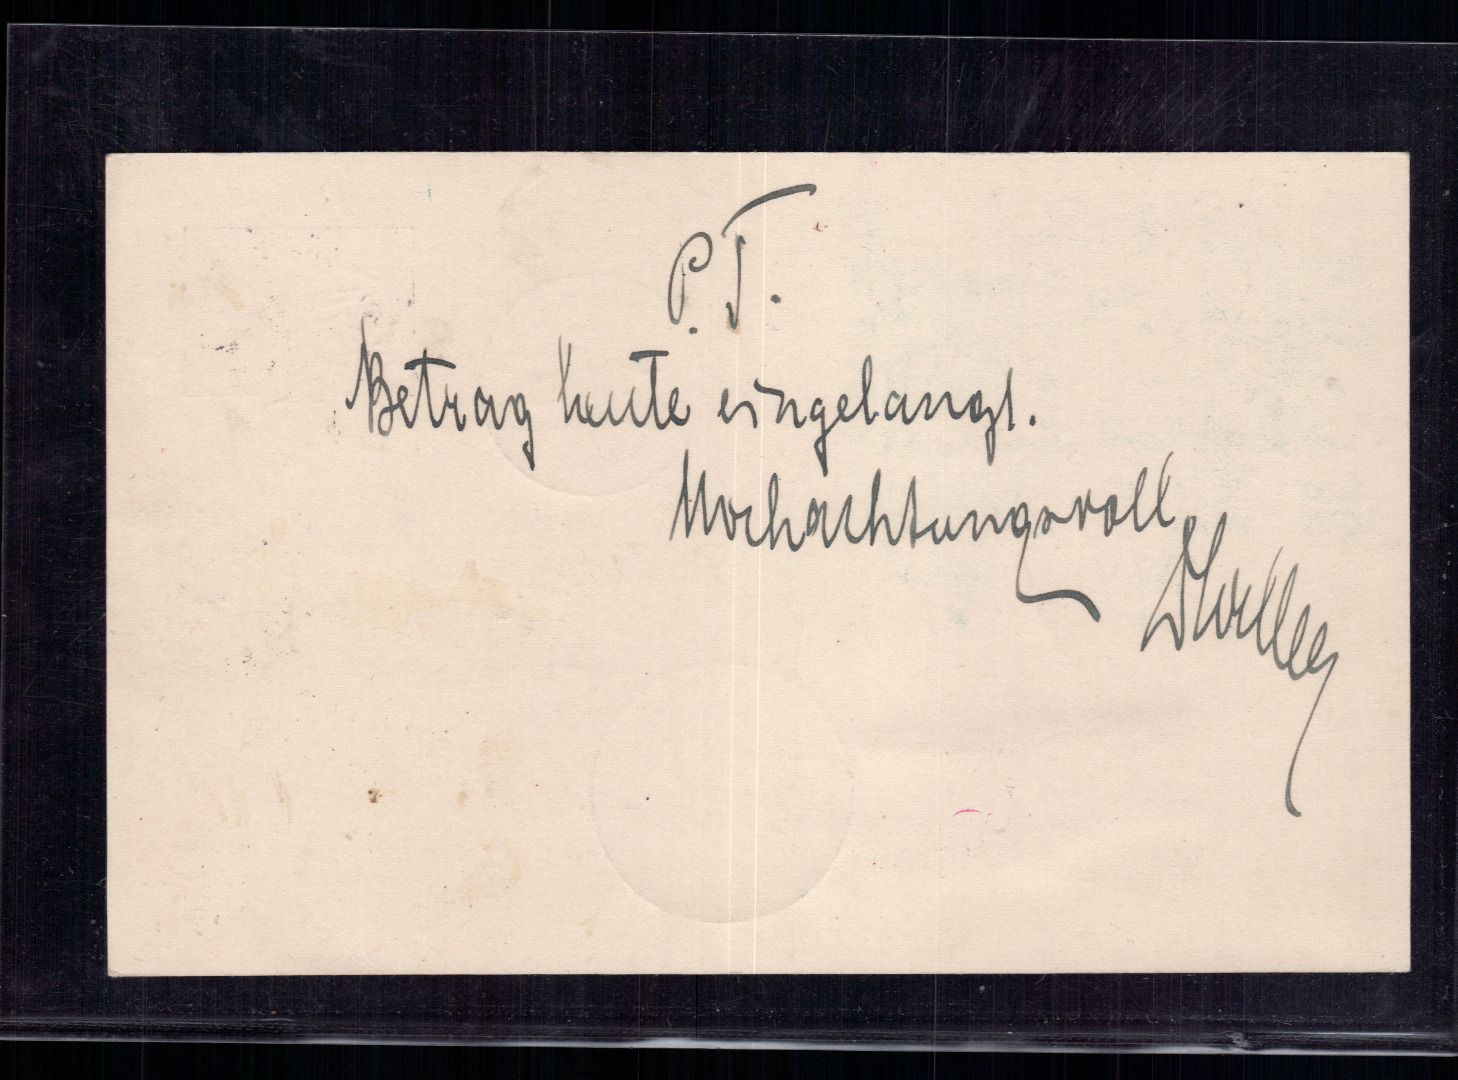 P. T.
Betrag heute eingelangt.
Hochachtungsvoll